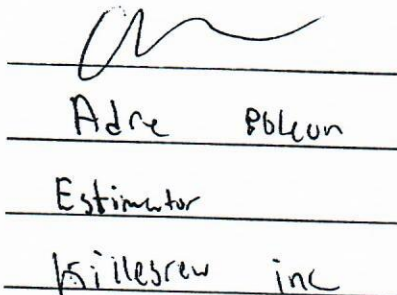 Adre
Estimator
Killebrew inc